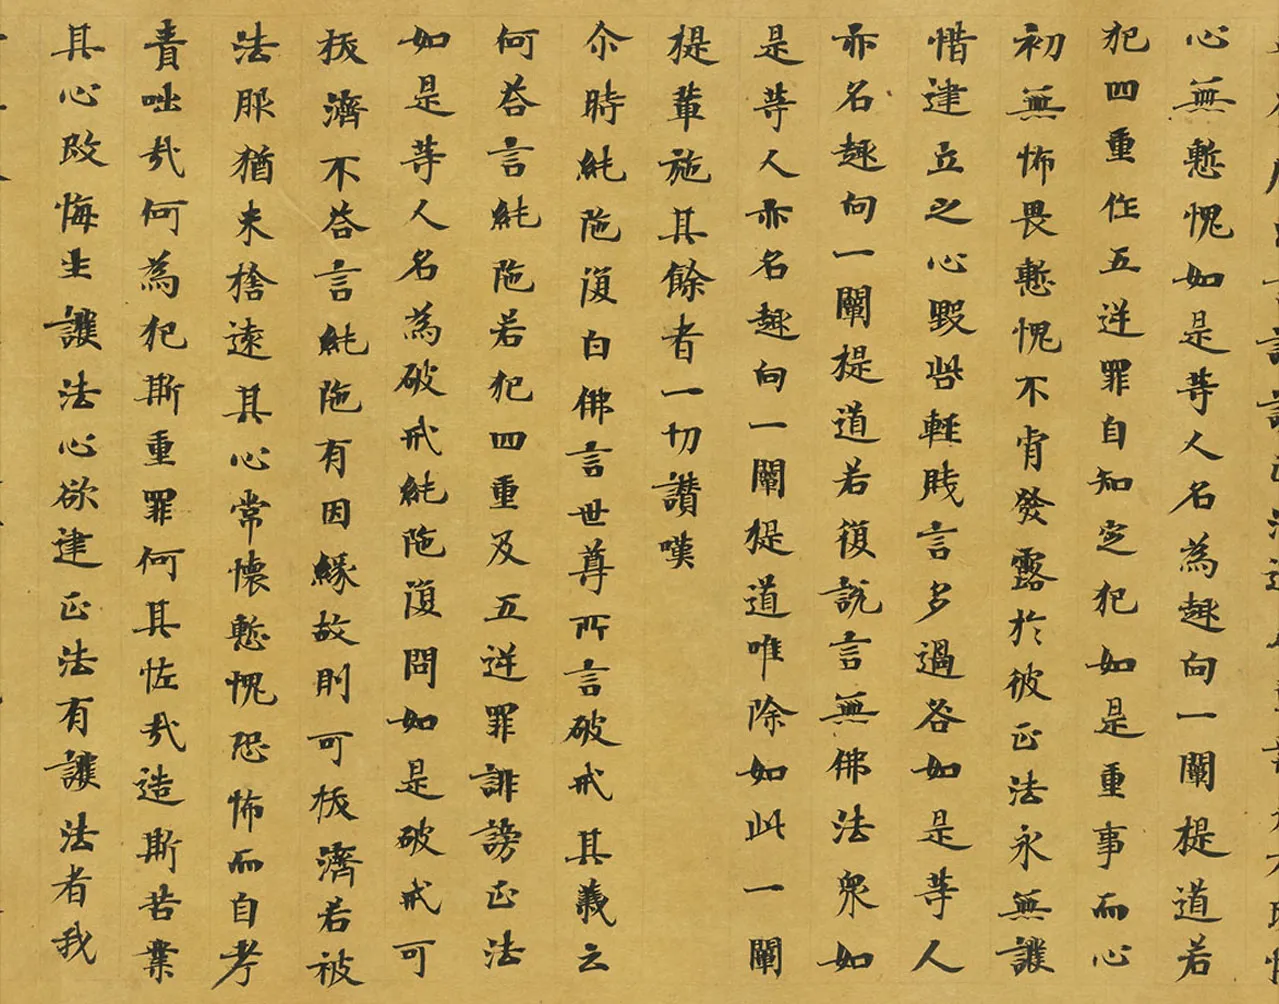 心無慙愧如是等人名為趣向一闡提道若
犯四重作五逆罪自知定犯如是重事而心
初無怖畏慙愧不肯發露於彼正法永無護
惜建立之心毀呰輕賤言多過咎如是等人
亦名趣向一闡提道若復說言無佛法眾如
是等人亦名趣向一闡提道唯除如此一闡
提輩施其餘者一切讚嘆
尒時純陁復白佛言世尊所言破戒其義云
何荅言純陁若犯四重及五逆罪誹謗正法
如是等人名為破戒純陁復問如是破戒可
拔濟不荅言純陁有因緣故則可拔濟若被
法服猶未捨遠其心常懷慙愧恐怖而自考
責咄哉何為犯斯重罪何其恠哉造斯苦業
其心改悔生護法心欲建正法有護法者我